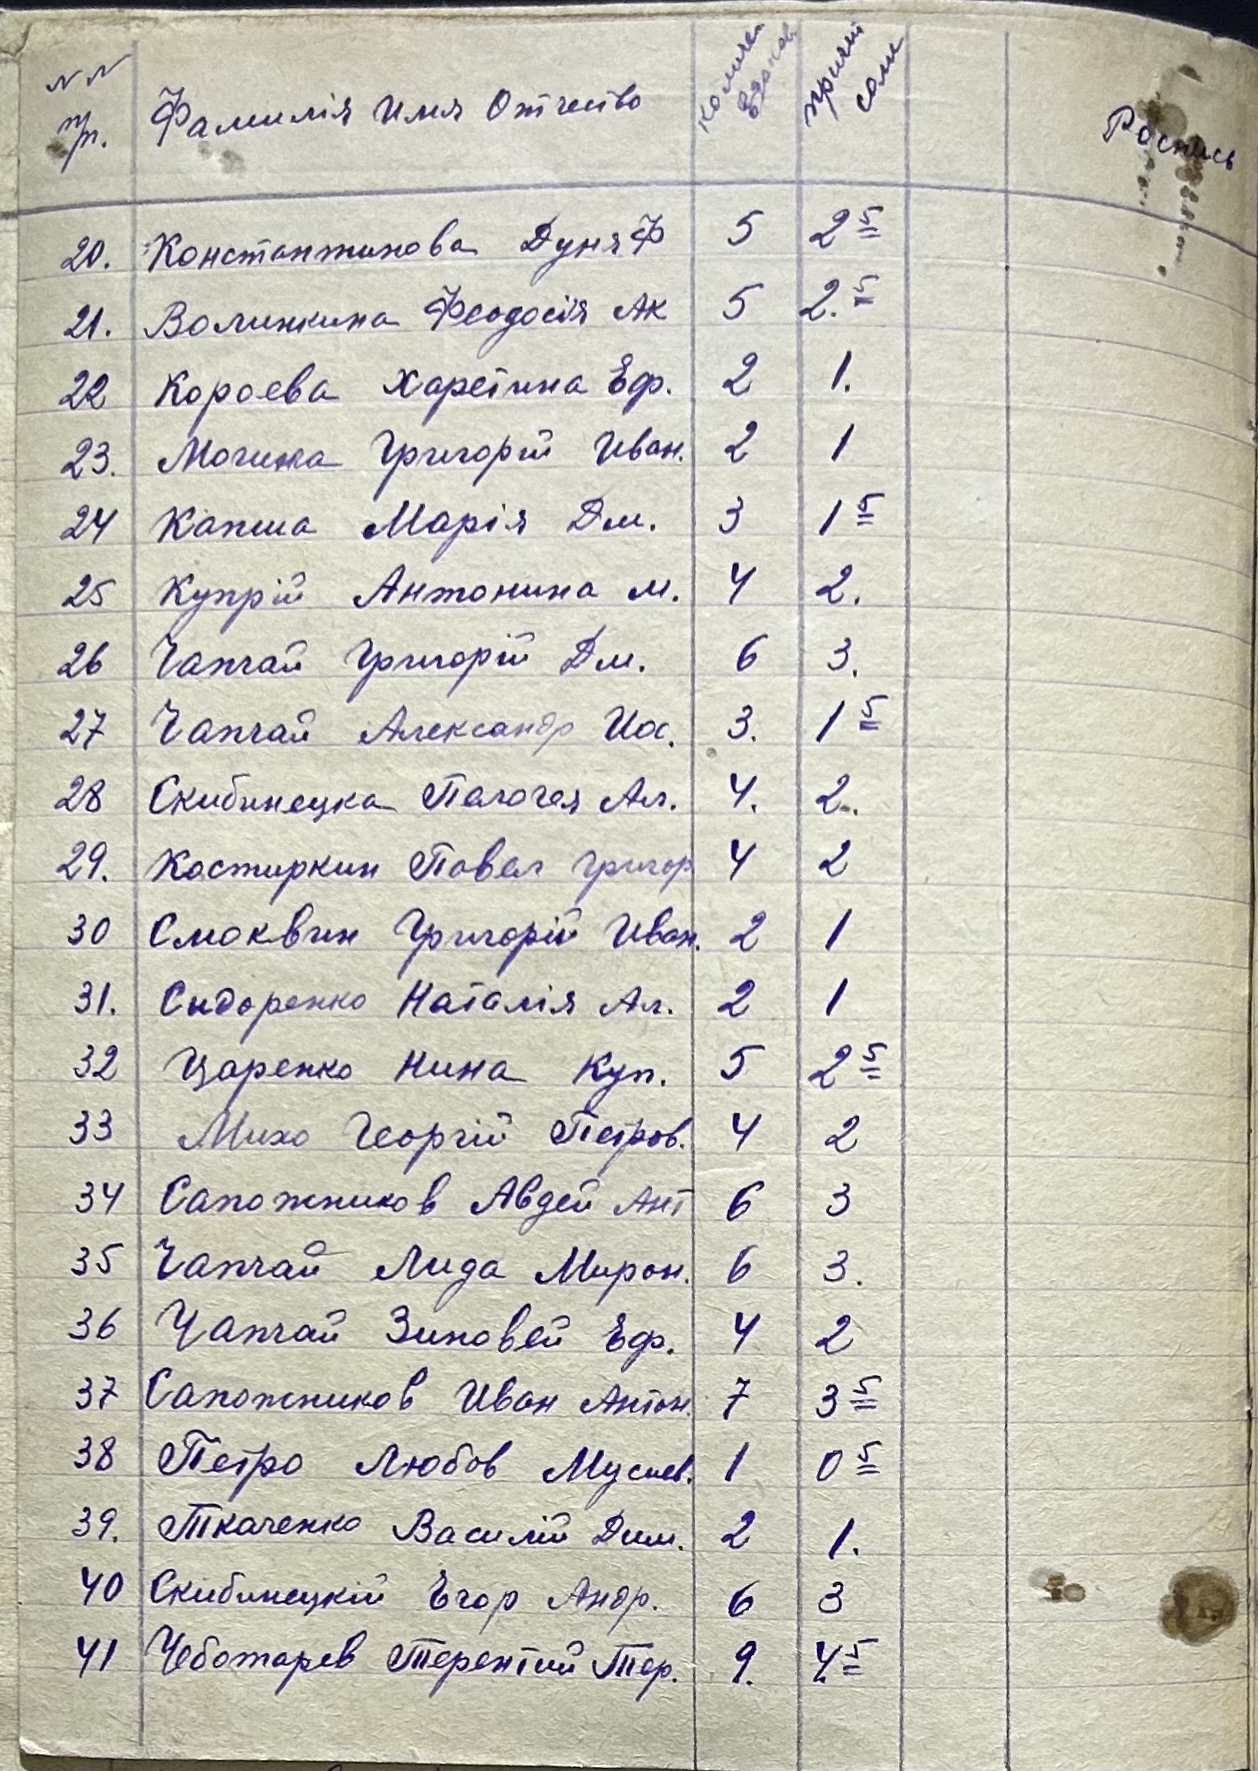 NN пр. Фамилія Имя Отчество Количе едоков причит соли Роспись
20. Константинова Дуня Ф 5 2 5
21. Волинкина Феодосія Ак 5 2. 5
22 Короева Харетина Еф. 2 1.
23. Могила Григорій Иван. 2 1
24 Капша Марія Дм. 3 1 5
25 Купрій Антонина М. 4 2.
26 Чапчай Григорій Дм. 6 3.
27 Чапчай Александр Иос. 3. 1 5
28 Скибинецка Пелогея Ал. 4. 2.
29. Костиркин Павел Григор 4 2
30 Смоквин Григорій Иван. 2 1
31. Сидоренко Наталія Ал. 2 1
32 Царенко Нина Куп. 5 2 5
33 Михо Георгій Петров. 4 2
34 Сапожников Авдей Ант 6 3
35 Чапчай Лида Мирон. 6 3.
36 Чапчай Зиновей Еф. 4 2
37 Сапожников Иван Антон. 7 3 5
38 Петро Любов Мусиев. 1 0 5
39. Ткаченко Василій Дим. 2 1.
40 Скибинецкій Егор Андр. 6 3
41 Чеботарев Терентий Тер. 9. 4 5